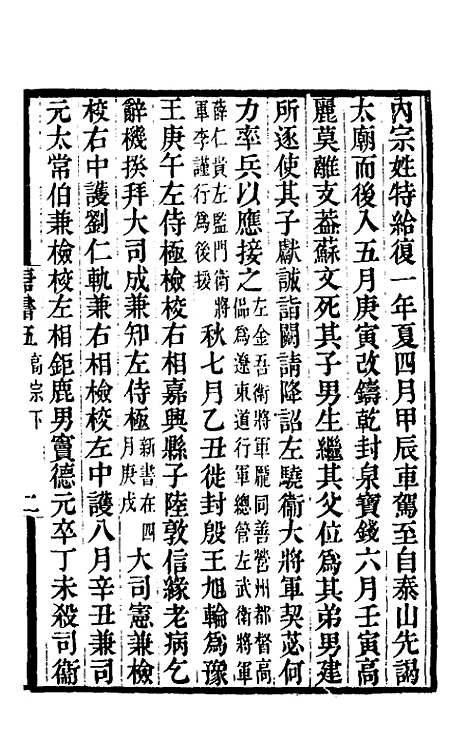 內宗姓特給復一年夏四月甲辰車駕至自泰山先謁
太廟而後入五月庚寅改鑄乾封泉寶錢六月壬寅高
麗莫離支蓋蘇文死其子男生繼其父位爲其弟男建
所逐使其子獻誠詣闕請降詔左驍衞大將軍契苾何
力率兵以應接之左金吾衛將軍龐同善營州都督高侃爲遼東道行軍總管左武衛將軍
薛仁貴左監門衛將軍李謹行爲後援秋七月乙丑徙封殷王旭輪爲豫
王庚午左侍極檢校右相嘉興縣子陸敦信緣老病乞
辭機揆拜大司成兼知左侍極新書在四月庚戌大司憲兼檢
校右中護劉仁軌兼右相檢校左中護八月辛丑兼司
元太常伯兼檢校左相鉅鹿男竇德元卒丁未殺司衞
唐書五 高宗下 二